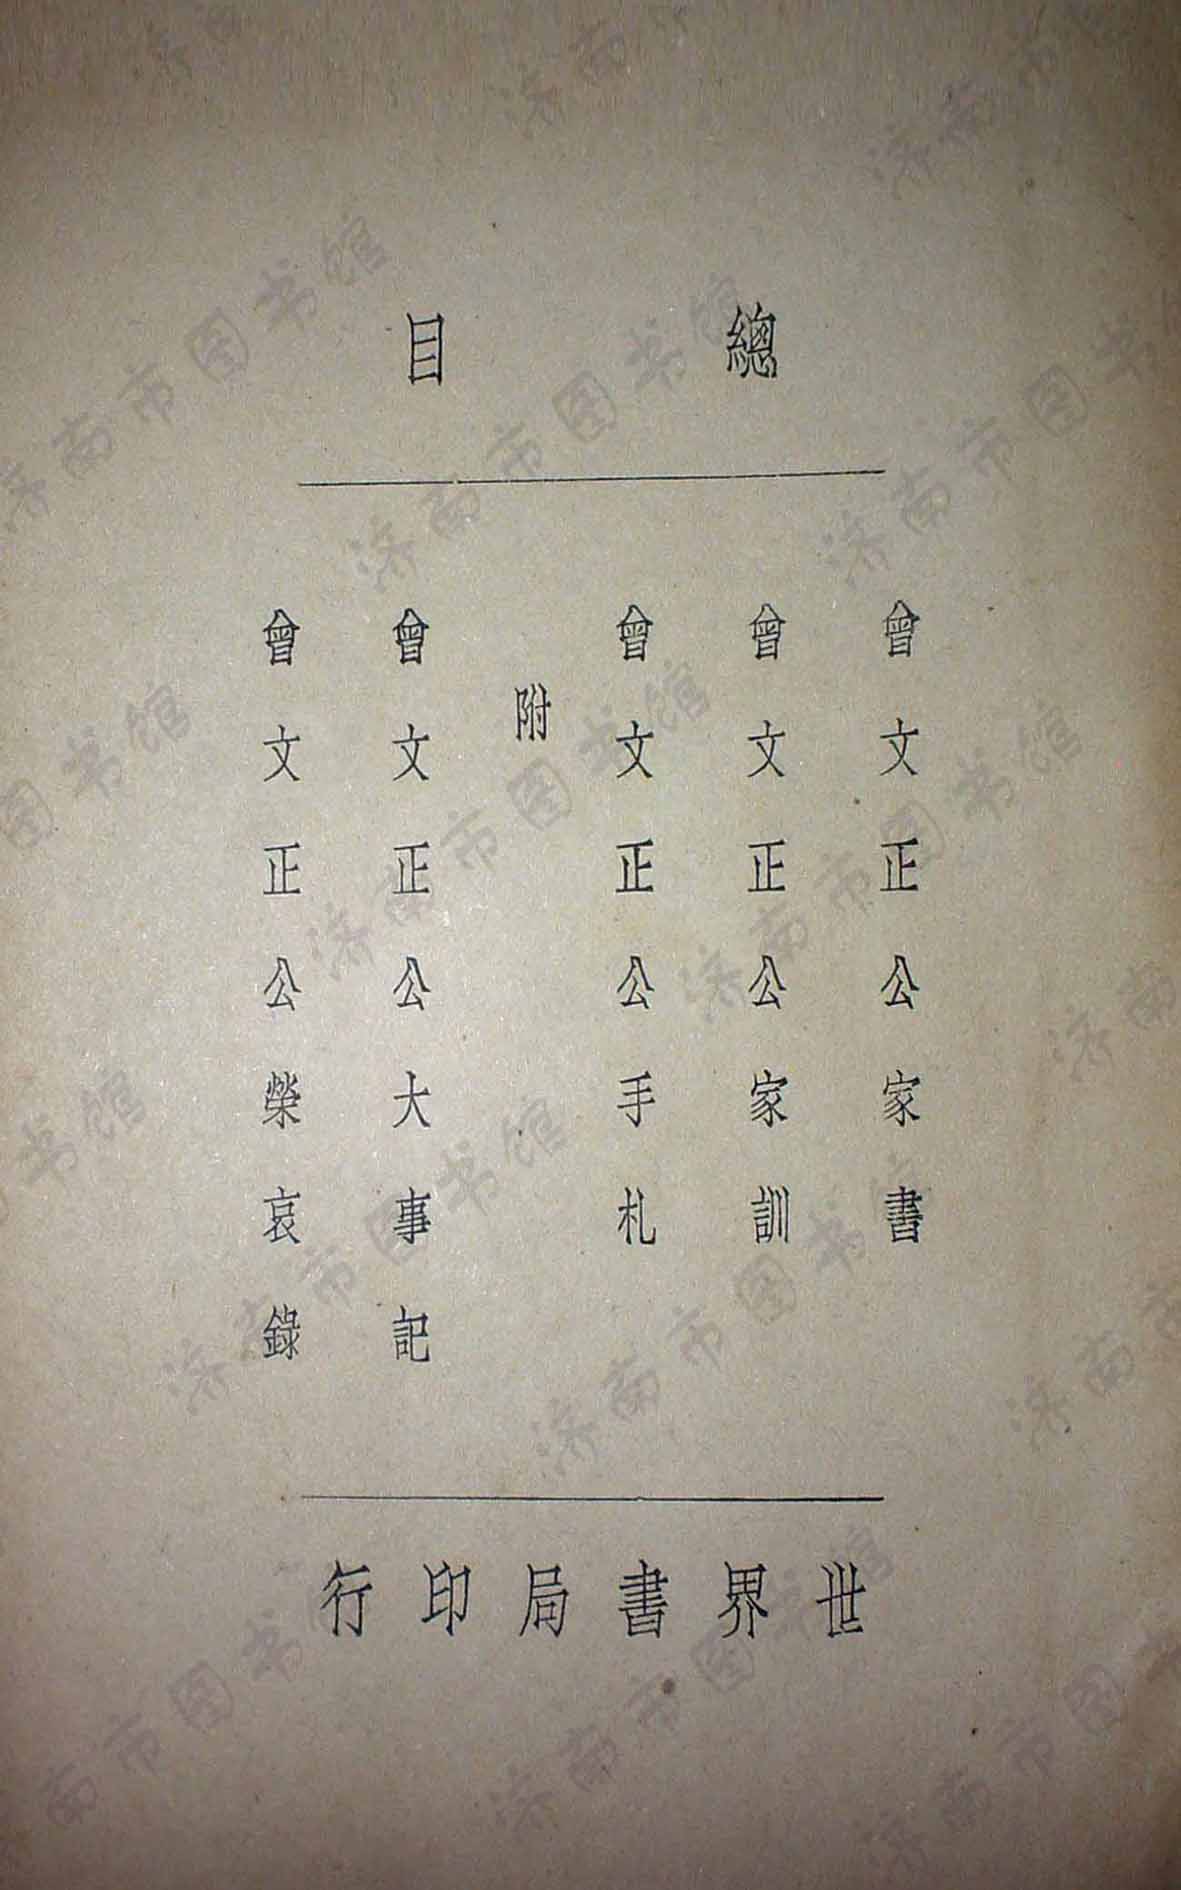 總目
曾文正公家書
曾文正公家訓
曾文正公手札
附
曾文正公大事記
曾文正公榮哀錄
世界書局印行
济南市图书馆